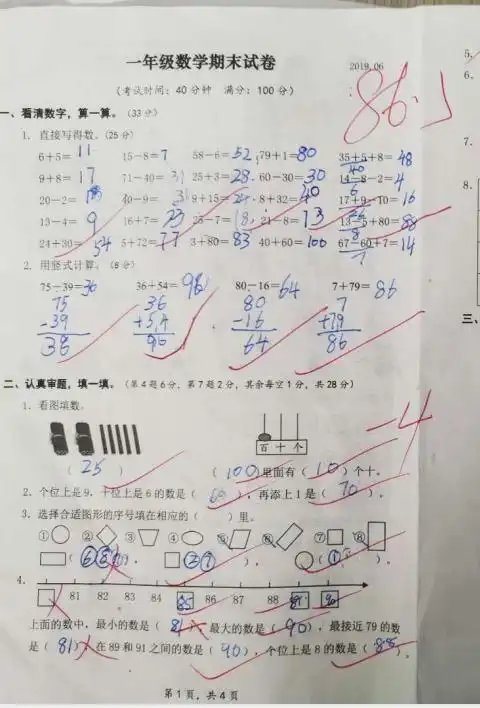 一年级数学期末试卷
2019.06
86.5
(考试时间：40分钟 满分：100分)
一、看清数字，算一算。(33分)
1. 直接写得数。(25分)
6+5=11 15-8=7 58-6=52 79+1=80 35+5+8=48
40
9+8=17 71-40=31 25+3=28 60-30=30 14-8-2=4
6
20-2=18 40-9=31 9+15=24 8+32=40 17+9-10=16
26
13-4=9 16+7=23 25-7=18 21-8=13 13-5+80=88
8
24+30=54 5+72=77 3+80=83 40+60=100 67-60+7=14
7
2. 用竖式计算。(8分)
75-39=36 36+54=90 80-16=64 7+79=86
75 36 80 7
-39 +54 -16 +79
36 90 64 86
二、认真审题，填一填。(第4题6分，第7题2分，其余每空1分，共28分)
-4
1. 看图填数。
百 十 个
(25) (100)里面有(10)个十。
2. 个位上是9，十位上是6的数是(69)，再添上1是(70)。
3. 选择合适图形的序号填在相应的( )里。
① ② ③ ④ ⑤ ⑥ ⑦ ⑧
4.
81 82 83 84 85 86 87 88 89 90
上面的数中，最小的数是(81)，最大的数是(90)，最接近79的数
是(81)，在89和91之间的数是(90)，个位上是8的数是(88)。
第1页，共4页
5.
6.
7.
8.
三、